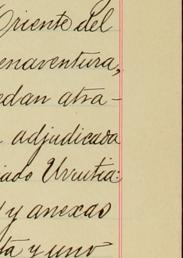 Oriente del
enaventura,
edan atra-
adjudicada
iado Urrutia:
y anexas
ta y uno